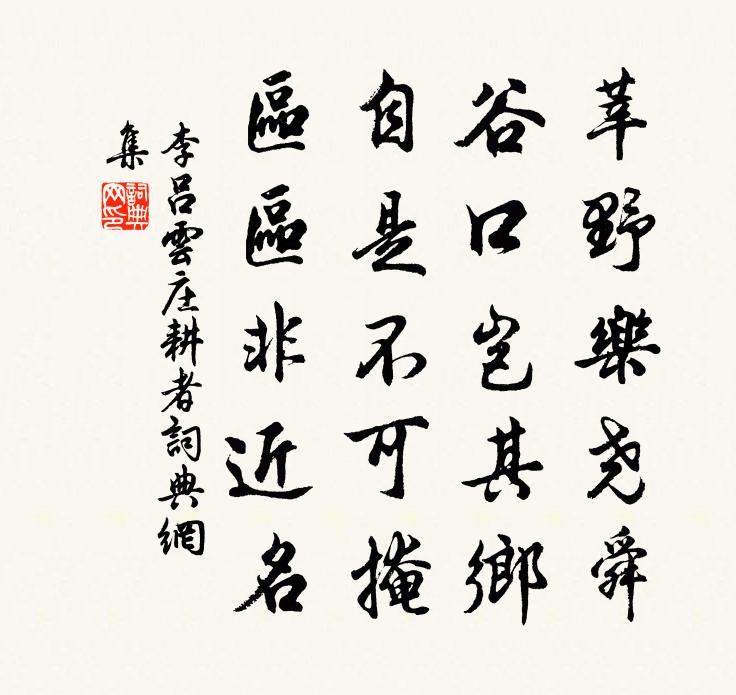 莘野樂尧舜
谷口岂其鄉
自是不可掩
區區非近名
李吕雲庄耕者詞典網
集
詞典网印